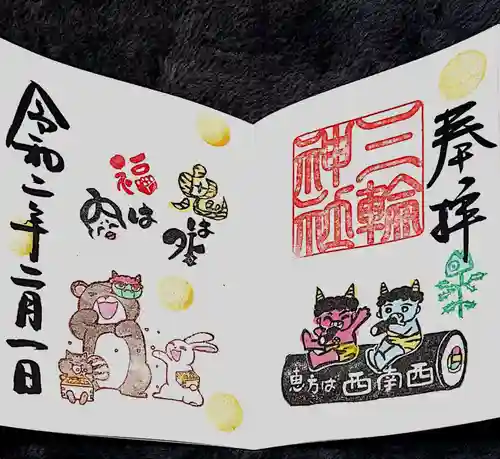 奉拝
三輪
神社
恵方は西南西
鬼は外
福は内
令和二年二月一日